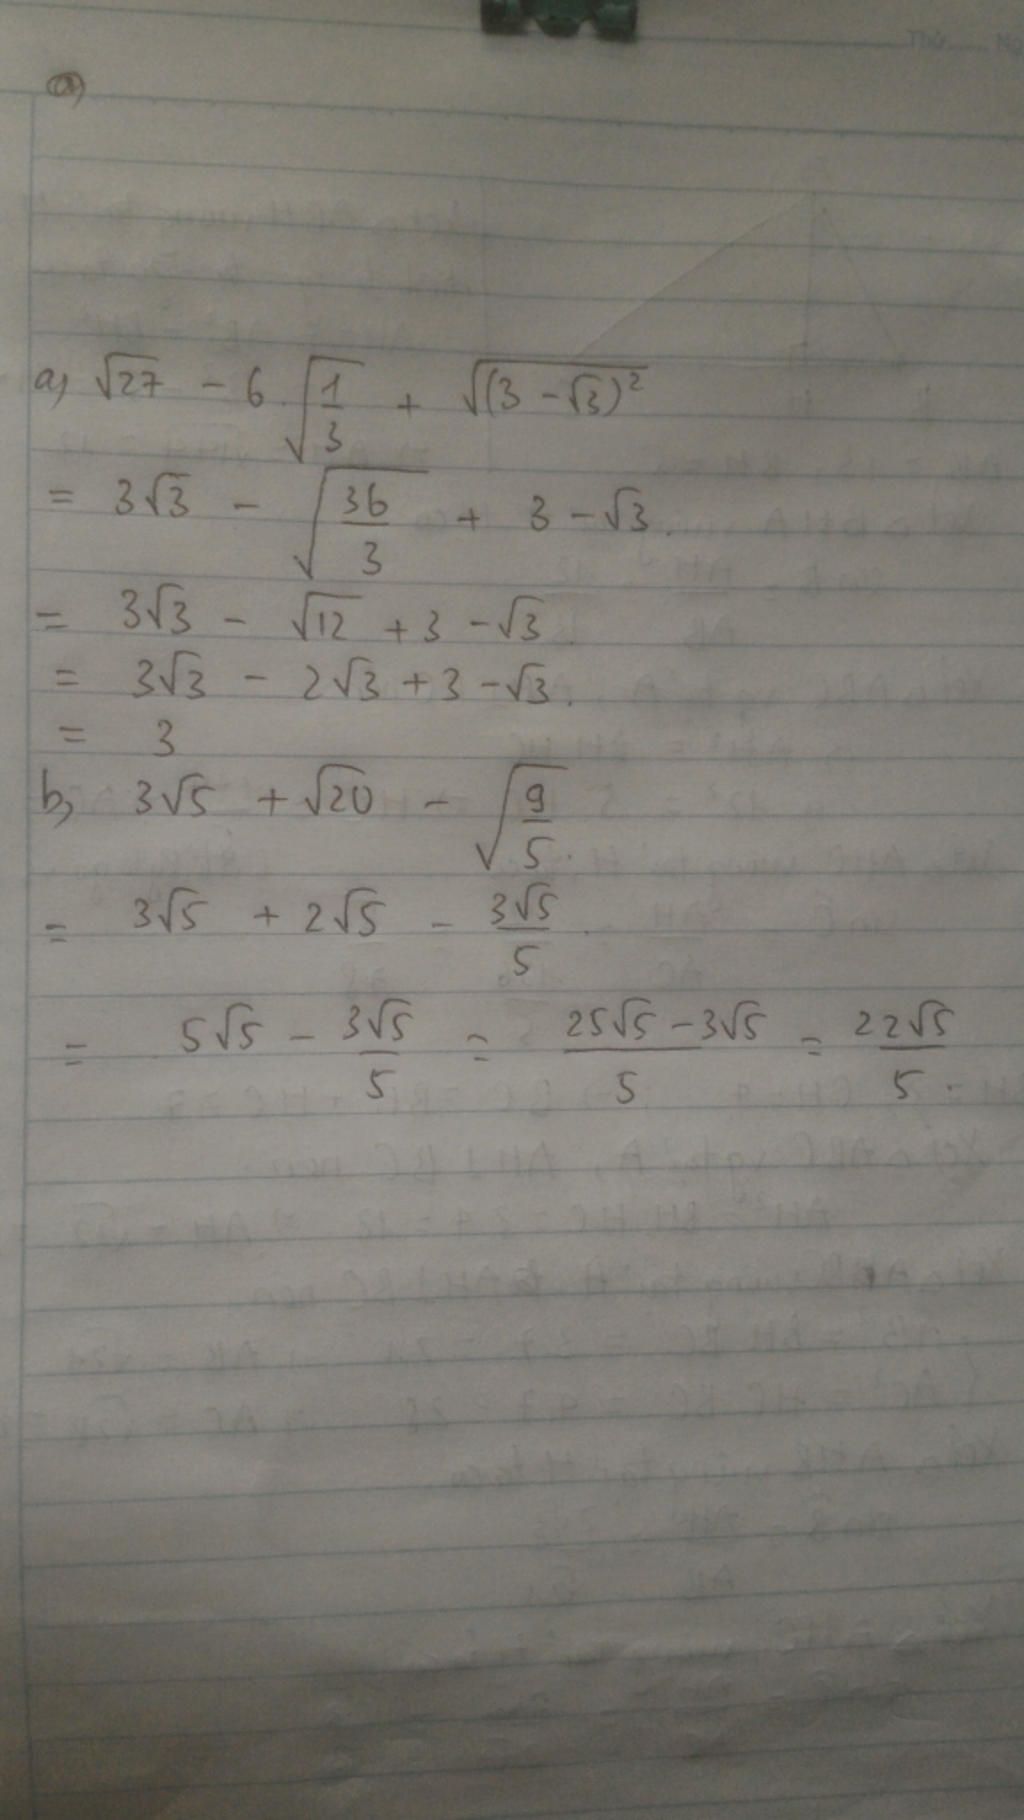 a) √27 - 6.√(1/3) + √((3 - √3)²)
= 3√3 - √(36/3) + 3 - √3.
= 3√3 - √12 + 3 - √3
= 3√3 - 2√3 + 3 - √3.
= 3
b) 3√5 + √20 - √(9/5).
= 3√5 + 2√5 - 3√5/5
= 5√5 - 3√5/5 = (25√5 - 3√5)/5 = 22√5/5.